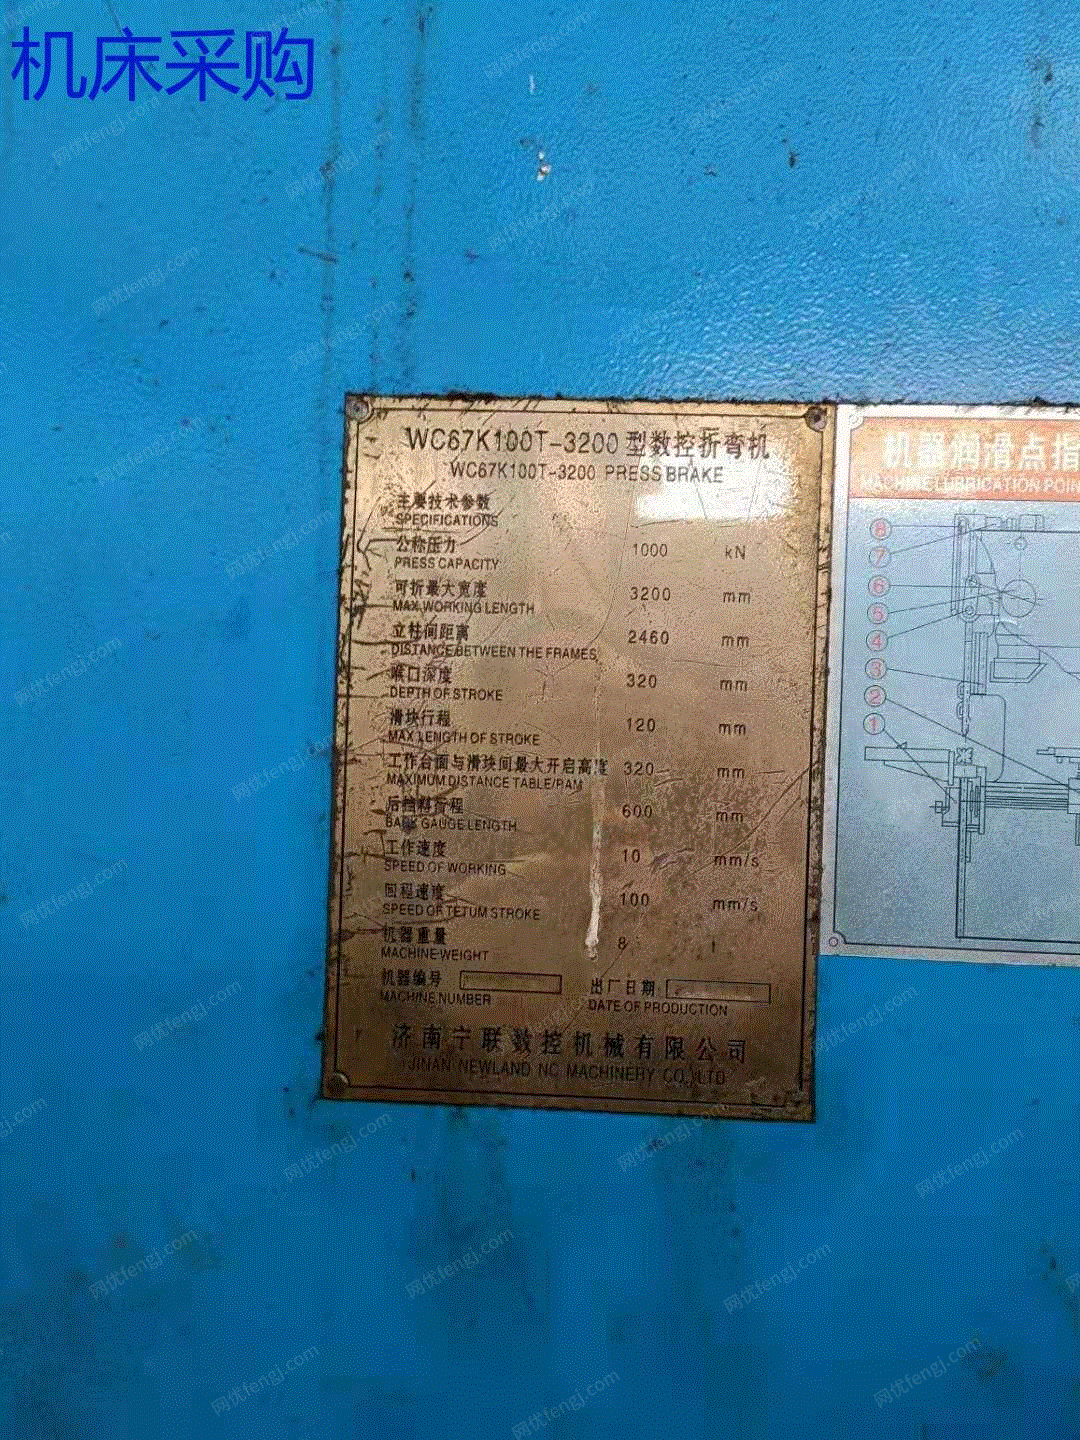 机床采购
WC67K100T-3200型数控折弯机
WC67K100T-3200 PRESS BRAKE
主要技术参数
SPECIFICATIONS
公称压力 1000 kN
PRESS CAPACITY
可折最大宽度 3200 mm
MAX.WORKING LENGTH
立柱间距离 2460 mm
DISTANCE BETWEEN THE FRAMES
喉口深度 320 mm
DEPTH OF STROKE
滑块行程 120 mm
MAX LENGTH OF STROKE
工作台面与滑块间最大开启高度 320 mm
MAXIMUM DISTANCE TABLE/RAM
后挡料行程 600 mm
BACK GAUGE LENGTH
工作速度 10 mm/s
SPEED OF WORKING
回程速度 100 mm/s
SPEED OF TETUM STROKE
机器重量 8 t
MACHINE WEIGHT
机器编号 出厂日期
MACHINE NUMBER DATE OF PRODUCTION
济南宁联数控机械有限公司
JINAN NEWLAND NC MACHINERY CO.,LTD
机器润滑点指
MACHINE LUBRICATION POIN
8
7
6
5
4
3
2
1
网优fengj.com